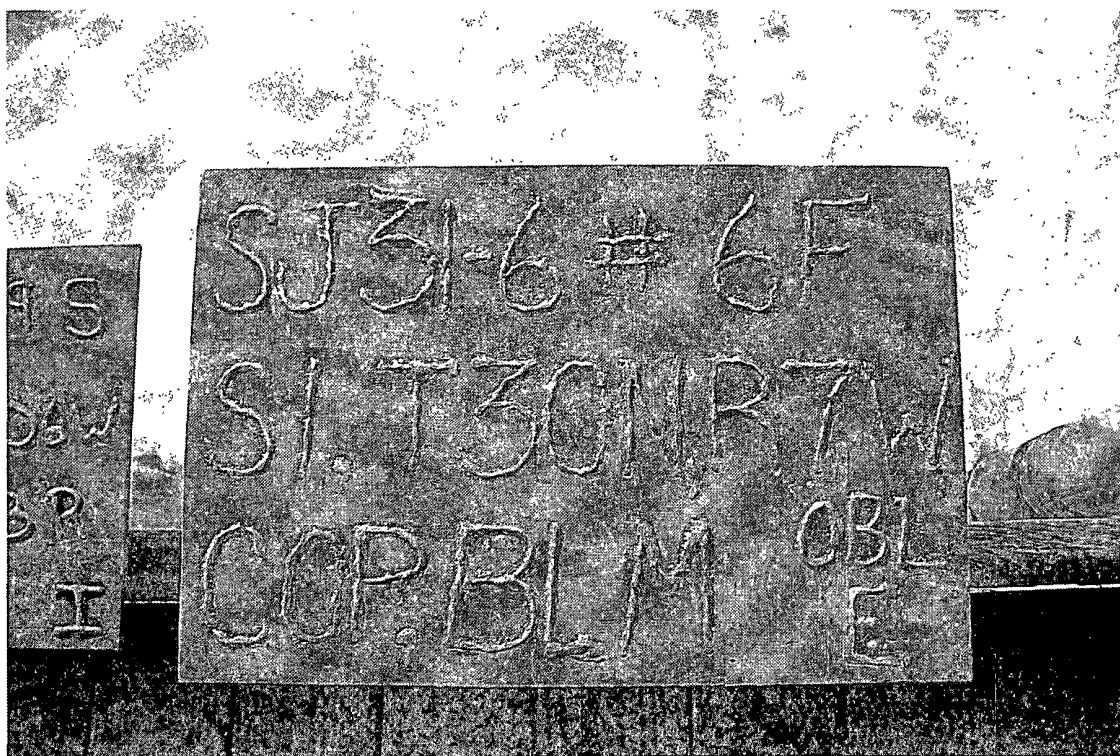 SJ31-6 # 6F
S1.T30NR7W
COP.BLM
OBL
E